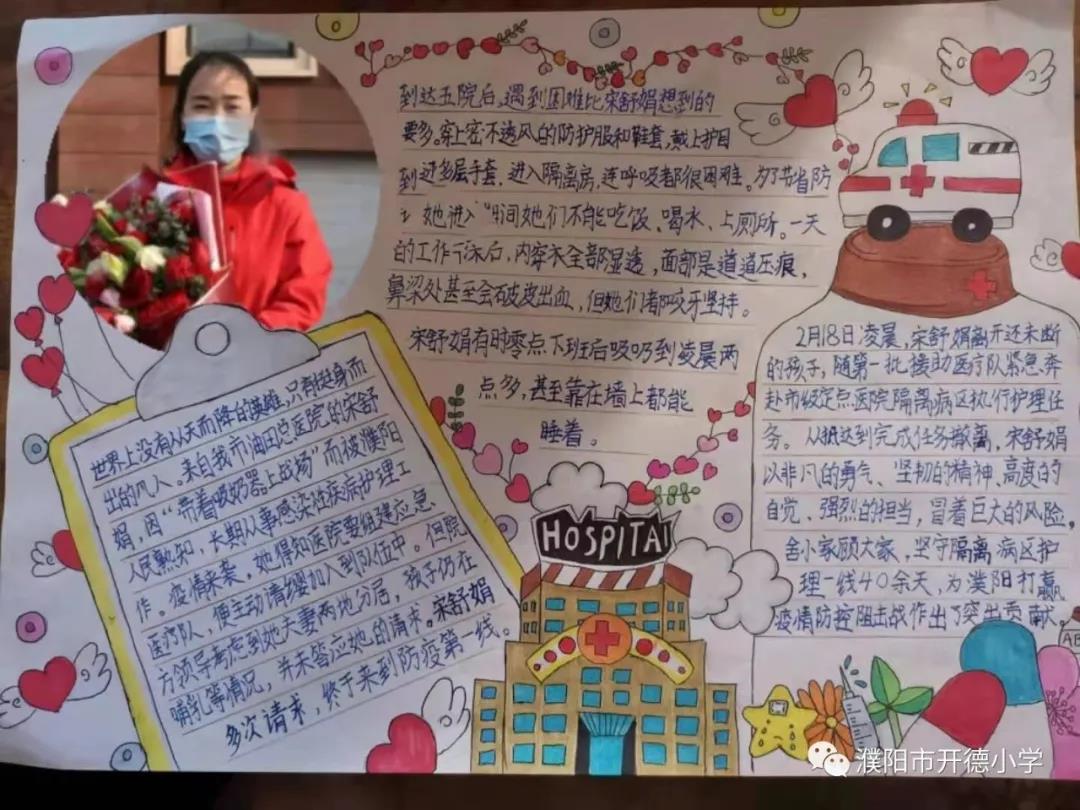 世界上没有从天而降的英雄,只有挺身而
出的凡人。来自我市油田总医院的宋舒
娟,因“带着吸奶器上战场”而被濮阳
人民熟知,长期从事感染性疾病护理工
作。疫情来袭。她得知医院要组建应急
医疗队,便主动请缨加入到队伍中。但院
方领导考虑到她夫妻两地分居,孩子仍在
哺乳等情况,并未答应她的请求。宋舒娟
多次请求,终于来到防疫第一线。
到达五院后,遇到困难比宋舒娟想到的
要多。穿上密不透风的防护服和鞋套,戴上护目
到过多层手套,进入隔离房,连呼吸都很困难。为了节省防
她进入 间她们不能吃饭、喝水、上厕所。一天
的工作下来后,内穿衣全部湿透,面部是道道压痕,
鼻梁处甚至会破皮出血,但她们都咬牙坚持。
宋舒娟有时零点下班后吸奶到凌晨两
点多,甚至靠在墙上都能
睡着。
HOSPITAL
2月18日凌晨,宋舒娟离开还未断
的孩子,随第一批援助医疗队紧急奔
赴市级定点医院隔离病区执行护理任
务。从抵达到完成任务撤离,宋舒娟
以非凡的勇气、坚韧的精神、高度的
自觉、强烈的担当,冒着巨大的风险,
舍小家顾大家,坚守隔离病区护
理一线40余天,为濮阳打赢
疫情防控阻击战作出了突出贡献.
濮阳市开德小学